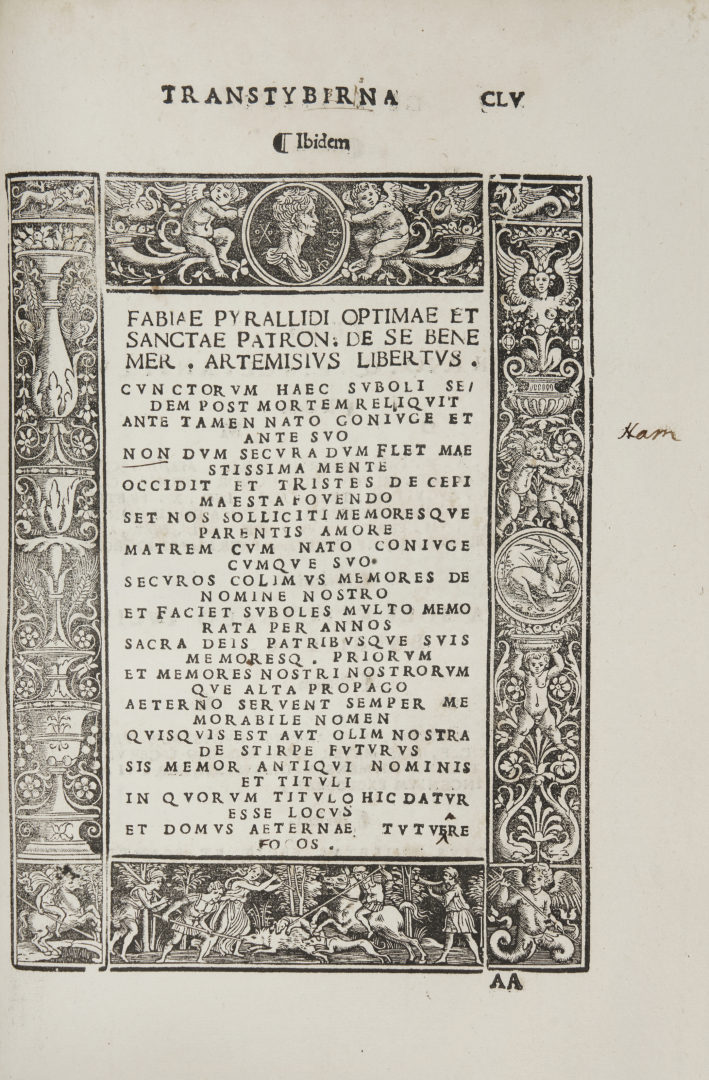 TRANSTYBIRNA CLV
¶ Ibidem
FABIAE PYRALLIDI OPTIMAE ET
SANCTAE PATRON. DE SE BENE
MER . ARTEMISIVS LIBERTVS .
CVNCTORVM HAEC SVBOLI SE/
DEM POST MORTEM RELIQVIT
ANTE TAMEN NATO CONIVGE ET
ANTE SVO
NON DVM SECVRA DVM FLET MAE
STISSIMA MENTE
OCCIDIT ET TRISTES DECEPI
MAESTA FOVENDO
SET NOS SOLLICITI MEMORESQVE
PARENTIS AMORE
MATREM CVM NATO CONIVGE
CVMQVE SVO
SECVROS COLIMVS MEMORES DE
NOMINE NOSTRO
ET FACIET SVBOLES MVLTO MEMO
RATA PER ANNOS
SACRA DEIS PATRIBVSQVE SVIS
MEMORESQ . PRIORVM
ET MEMORES NOSTRI NOSTRORVM
QVE ALTA PROPAGO
AETERNO SERVENT SEMPER ME
MORABILE NOMEN
QVISQVIS EST AVT OLIM NOSTRA
DE STIRPE FVTVRVS
SIS MEMOR ANTIQVI NOMINIS
ET TITVLI
IN QVORVM TITVLO HIC DATVR
ESSE LOCVS
ET DOMVS AETERNAE TVTVERE
FOCOS .
Ham
AA